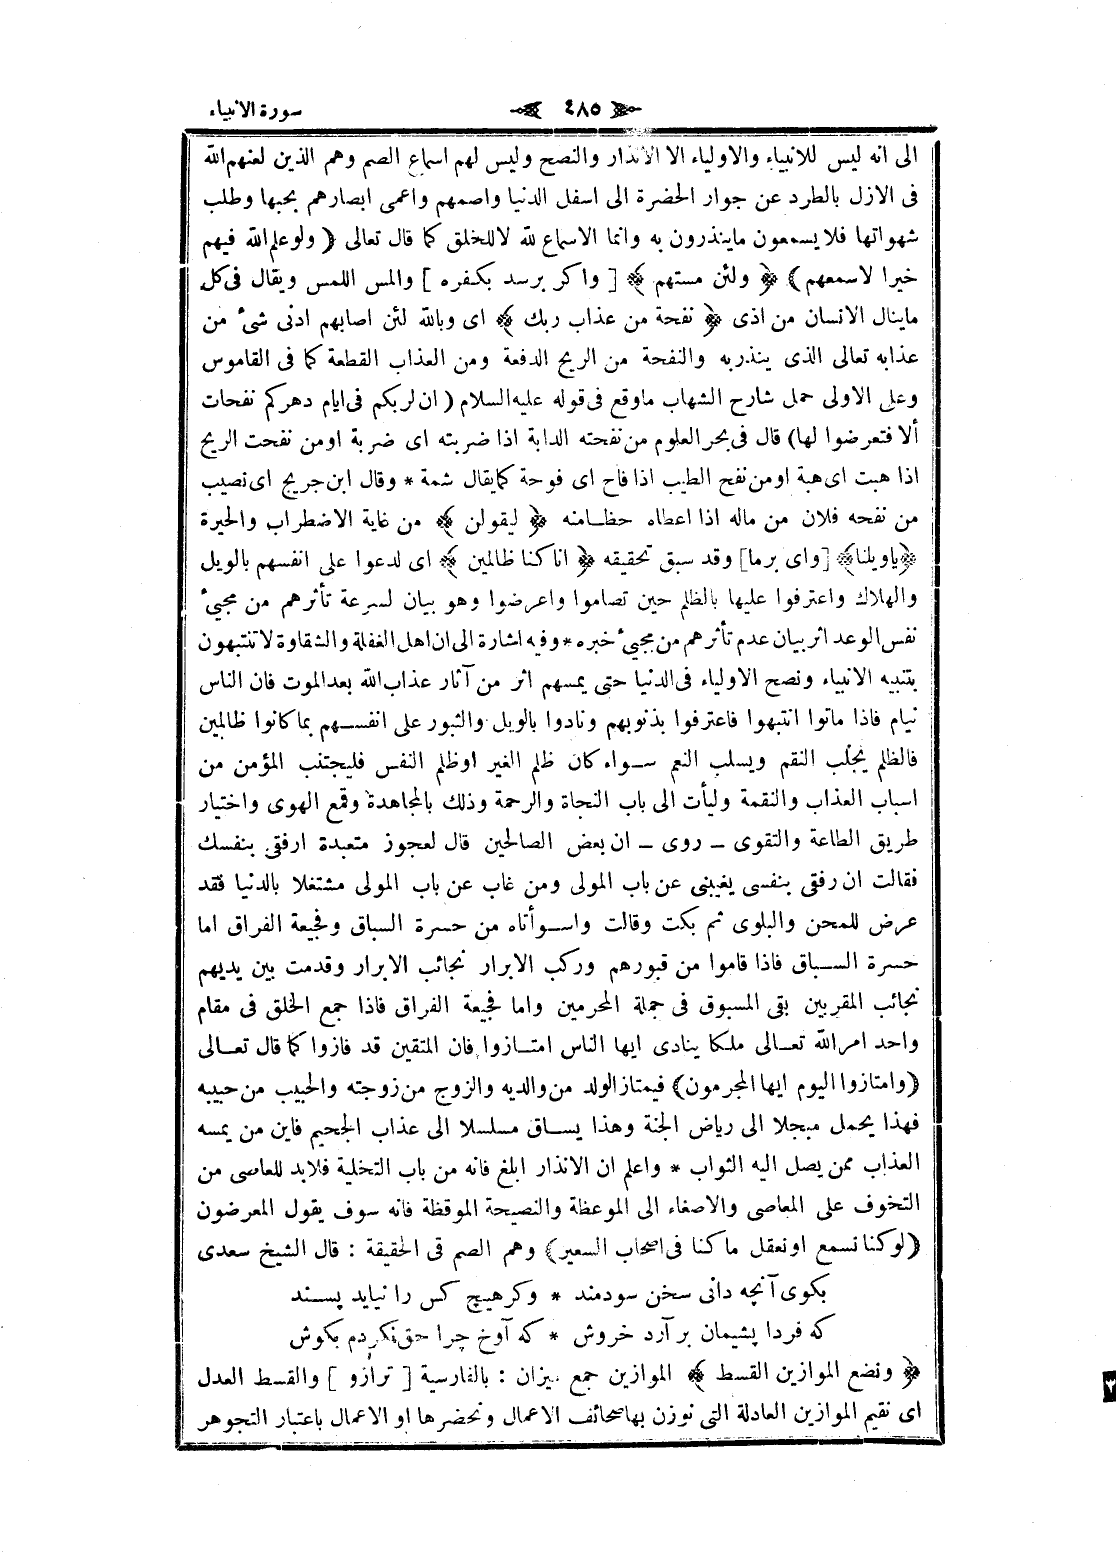 سورة الانبياء
٤٨٥
الى انه ليس للانبياء والاولياء الا الانذار والنصح وليس لهم اسماع الصم وهم الذين لعنهم الله
فى الازل بالطرد عن جوار الحضرة الى اسفل الدنيا واصمهم واعمى ابصارهم بحبها وطلب
شهواتها فلا يسمعون ماينذرون به وانما الاسماع لله لاللخلق كما قال تعالى ( ولوعلم الله فيهم
خيرا لاسمعهم) ﴿ ولئن مستهم ﴾ [ واكر برسد بكفره ] والمس اللمس ويقال فى كل
ماينال الانسان من اذى ﴿ نفحة من عذاب ربك ﴾ اى وبالله لئن اصابهم ادنى شىء من
عذابه تعالى الذى ينذربه والنفحة من الريح الدفعة ومن العذاب القطعة كما فى القاموس
وعلى الاولى حمل شارح الشهاب ماوقع فى قوله عليه السلام ( ان لربكم فى ايام دهركم نفحات
ألا فتعرضوا لها) قال فى بحر العلوم من نفحته الدابة اذا ضربته اى ضربة اومن نفحت الريح
اذا هبت اى هبة اومن نفح الطيب اذا فاح اى فوحة كمايقال شمة * وقال ابن جريج اى نصيب
من نفحه فلان من ماله اذا اعطاه حظامنه ﴿ ليقولن ﴾ من غاية الاضطراب والحيرة
﴿ياويلنا﴾ [واى برما] وقد سبق تحقيقه ﴿ اناكنا ظالمين ﴾ اى لدعوا على انفسهم بالويل
والهلاك واعترفوا عليها بالظلم حين تصاموا واعرضوا وهو بيان لسرعة تأثرهم من مجيىء
نفس الوعد اثر بيان عدم تأثرهم من مجيىء خبره * وفيه اشارة الى ان اهل الغفلة والشقاوة لاتنتبهون
بتنبيه الانبياء ونصح الاولياء فى الدنيا حتى يمسهم اثر من آثار عذاب الله بعد الموت فان الناس
نيام فاذا ماتوا انتبهوا فاعترفوا بذنوبهم ونادوا بالويل والثبور على انفسهم بماكانوا ظالمين
فالظلم يجلب النقم ويسلب النعم سواء كان ظلم الغير اوظلم النفس فليجتنب المؤمن من
اسباب العذاب والنقمة وليأت الى باب النجاة والرحمة وذلك بالمجاهدة وقمع الهوى واختيار
طريق الطاعة والتقوى ـ روى ـ ان بعض الصالحين قال لعجوز متعبدة ارفقى بنفسك
فقالت ان رفقى بنفسى يغيبنى عن باب المولى ومن غاب عن باب المولى مشتغلا بالدنيا فقد
عرض للمحن والبلوى ثم بكت وقالت واسوأتاه من حسرة السباق وفجيعة الفراق اما
حسرة السباق فاذا قاموا من قبورهم وركب الابرار نجائب الابرار وقدمت بين يديهم
نجائب المقربين بقى المسبوق فى جملة المحرمين واما فجيعة الفراق فاذا جمع الخلق فى مقام
واحد امر الله تعالى ملكا ينادى ايها الناس امتازوا فان المتقين قد فازوا كما قال تعالى
(وامتازوا اليوم ايها المجرمون) فيمتاز الولد من والديه والزوج من زوجته والحبيب من حبيبه
فهذا يحمل مبجلا الى رياض الجنة وهذا يساق مسلسلا الى عذاب الجحيم فاين من يمسه
العذاب ممن يصل اليه الثواب * واعلم ان الانذار ابلغ فانه من باب التخلية فلابد للعاصى من
التخوف على المعاصى والاصغاء الى الموعظة والنصيحة الموقظة فانه سوف يقول المعرضون
(لوكنا نسمع اونعقل ماكنا فى اصحاب السعير) وهم الصم فى الحقيقة : قال الشيخ سعدى
بكوى آنچه دانى سخن سودمند * وكر هيچ كس را نيايد پسند
كه فردا پشيمان بر آرد خروش * كه آوخ چرا حق نكردم بكوش
﴿ ونضع الموازين القسط ﴾ الموازين جمع ميزان : بالفارسية [ ترازو ] والقسط العدل
اى نقيم الموازين العادلة التى توزن بها صحائف الاعمال ونحضرها او الاعمال باعتبار التجوهر